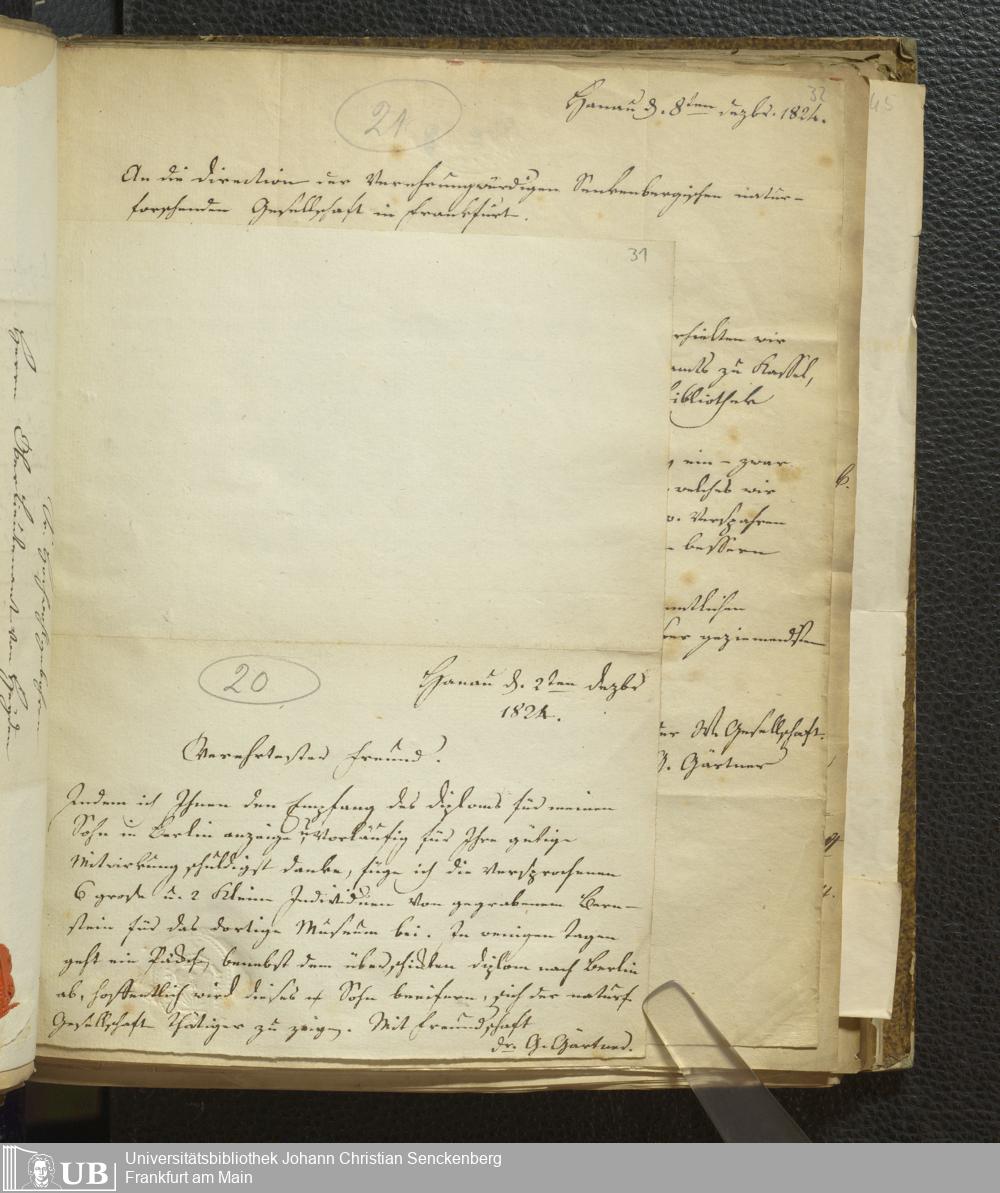 32
45
21
Hanau d. 8ten Dezbr. 1824.
An die Direction der Verehrungwürdigen Senkenbergischen natur-
forschenden Gesellschaft in Frankfurt.
31
erhielten wir
amts zu Kassel,
bibliothek
ein - zwar
welches wir
Versparen
bessern
amtlichen
geziemendsten
der W. Gesellschaft.
G. Gärtner
20
Hanau d. 2ten Dezbr
1824.
Verehrtester Freund.
Indem ich Ihnen den Empfang des Diploms für meinen
Sohn in Berlin anzeige u. vorläufig für Ihre gütige
Mitwirkung schuldigst danke, füge ich die versprochenen
6 große u. 2 kleine Individuen von gegrabenem Bern-
stein für das dortige Museum bei. In wenigen Tagen
geht ein benebst dem überschickten Diplom nach Berlin
ab, hoffentlich wird dieses Sohn beeifern, sich der naturf.
Gesellschaft thätiger zu zeigen. Mit Freundschaft
dr. G. Gärtner.
Herrn Oberlieutenant von Heyden
UB
Universitätsbibliothek Johann Christian Senckenberg
Frankfurt am Main